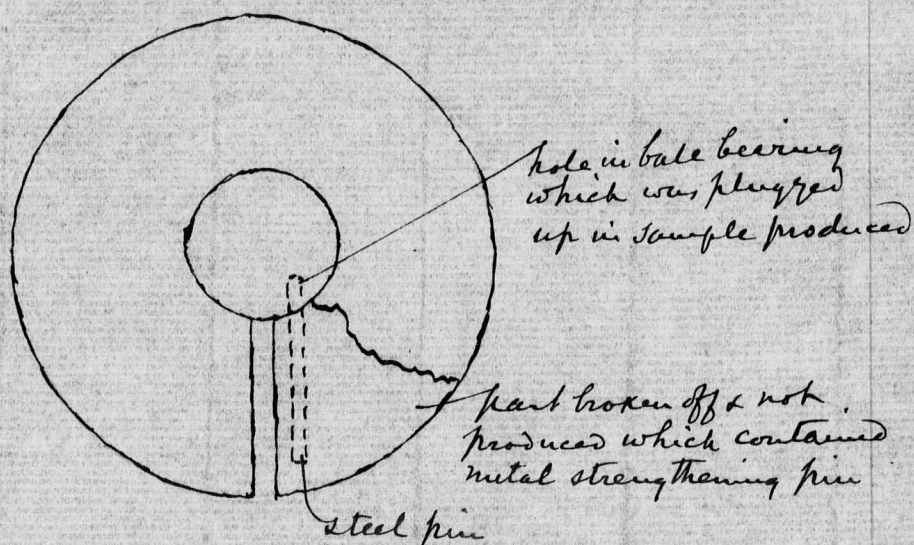 hole in bale bearing
which was plugged
up in sample produced
part broken off & not
produced which contained
metal strengthening pin
steel pin